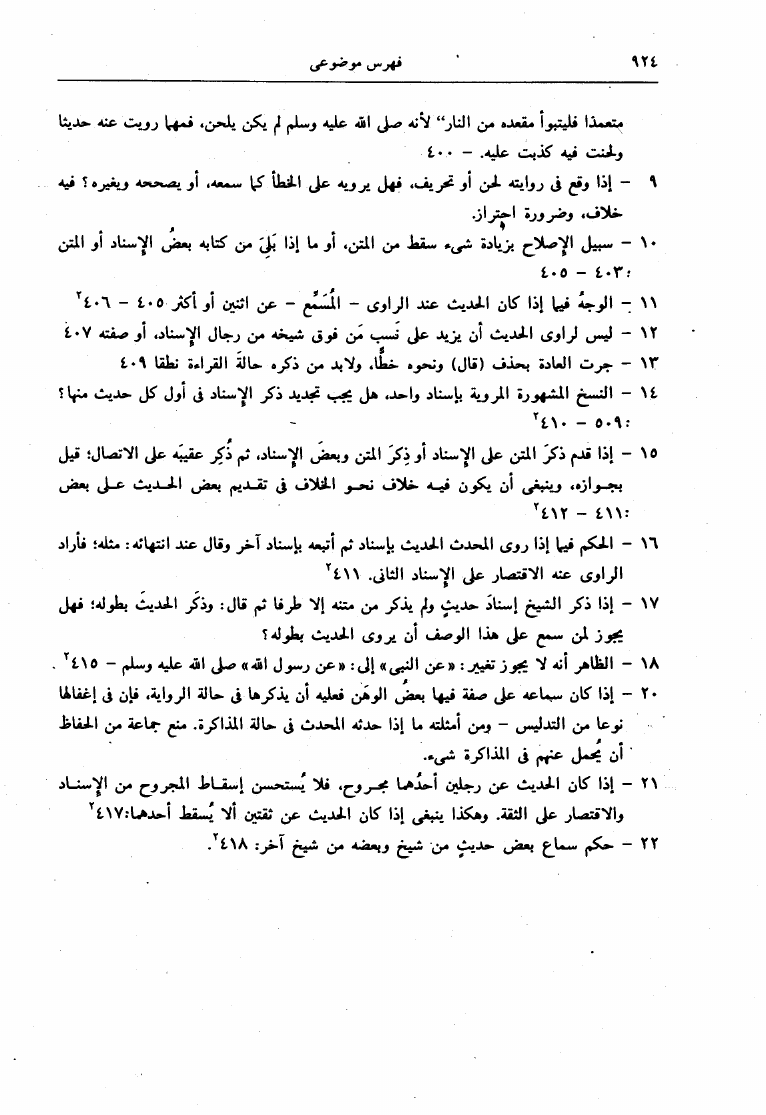 ٩٢٤ فهرس موضوعى
متعمدًا فليتبوأ مقعده من النار“ لأنه صلى الله عليه وسلم لم يكن يلحن، فمهما رويت عنه حديثا
ولحنت فيه كذبت عليه. – ٤٠٠
٩ – إذا وقع فى روايته لحن أو تحريف، فهل يرويه على الخطأ كما سمعه، أو يصححه ويغيره؟ فيه
خلاف، وضرورة احتراز.
١٠ – سبيل الإصلاح بزيادة شىء سقط من المتن، أو ما إذا بَلِىَ من كتابه بعضُ الإسناد أو المتن
:٤٠٣ – ٤٠٥
١١ – الوجهُ فيما إذا كان الحديث عند الراوى – المُسَمِّع – عن اثنين أو أكثر ٤٠٥ – ٤٠٦٢
١٢ – ليس لراوى الحديث أن يزيد على نَسبِ مَن فوق شيخه من رجال الإسناد، أو صفته ٤٠٧
١٣ – جرت العادة بحذف (قال) ونحوه خطًّا، ولابد من ذكره حالةَ القراءة نطقا ٤٠٩
١٤ – النسخ المشهورة المروية بإسناد واحد، هل يجب تجديد ذكر الإسناد فى أول كل حديث منها؟
:٥٠٩ – ٤١٠٢
١٥ – إذا قدم ذكرَ المتن على الإسناد أو ذِكرَ المتن وبعضَ الإسناد، ثم ذُكِر عقيبَه على الاتصال؛ قيل
بجوازه، وينبغى أن يكون فيه خلاف نحو الخلاف فى تقديم بعض الحديث على بعض
:٤١١ – ٤١٢٢
١٦ – الحكم فيما إذا روى المحدث الحديث بإسناد ثم أتبعه بإسناد آخر وقال عند انتهائه: مثله؛ فأراد
الراوى عنه الاقتصار على الإسناد الثانى. ٤١١٢
١٧ – إذا ذكر الشيخ إسنادَ حديثٍ ولم يذكر من متنه إلا طرفا ثم قال: وذكَر الحديثَ بطوله؛ فهل
يجوز لمن سمع على هذا الوصف أن يروى الحديث بطوله؟
١٨ – الظاهر أنه لا يجوز تغيير: «عن النبى» إلى: «عن رسول الله» صلى الله عليه وسلم – ٤١٥٢.
٢٠ – إذا كان سماعه على صفة فيها بعضُ الوهَن فعليه أن يذكرها فى حالة الرواية، فإن فى إغفالها
نوعا من التدليس – ومن أمثلته ما إذا حدثه المحدث فى حالة المذاكرة. منع جماعة من الحفاظ
أن يُحمل عنهم فى المذاكرة شىء.
٢١ – إذا كان الحديث عن رجلين أحدُهما مجروح، فلا يُستحسن إسقاط المجروح من الإسناد
والاقتصار على الثقة. وهكذا ينبغى إذا كان الحديث عن ثقتين ألا يُسقط أحدهما:٤١٧٢
٢٢ – حكم سماع بعض حديثٍ من شيخ وبعضه من شيخ آخر: ٤١٨٢.